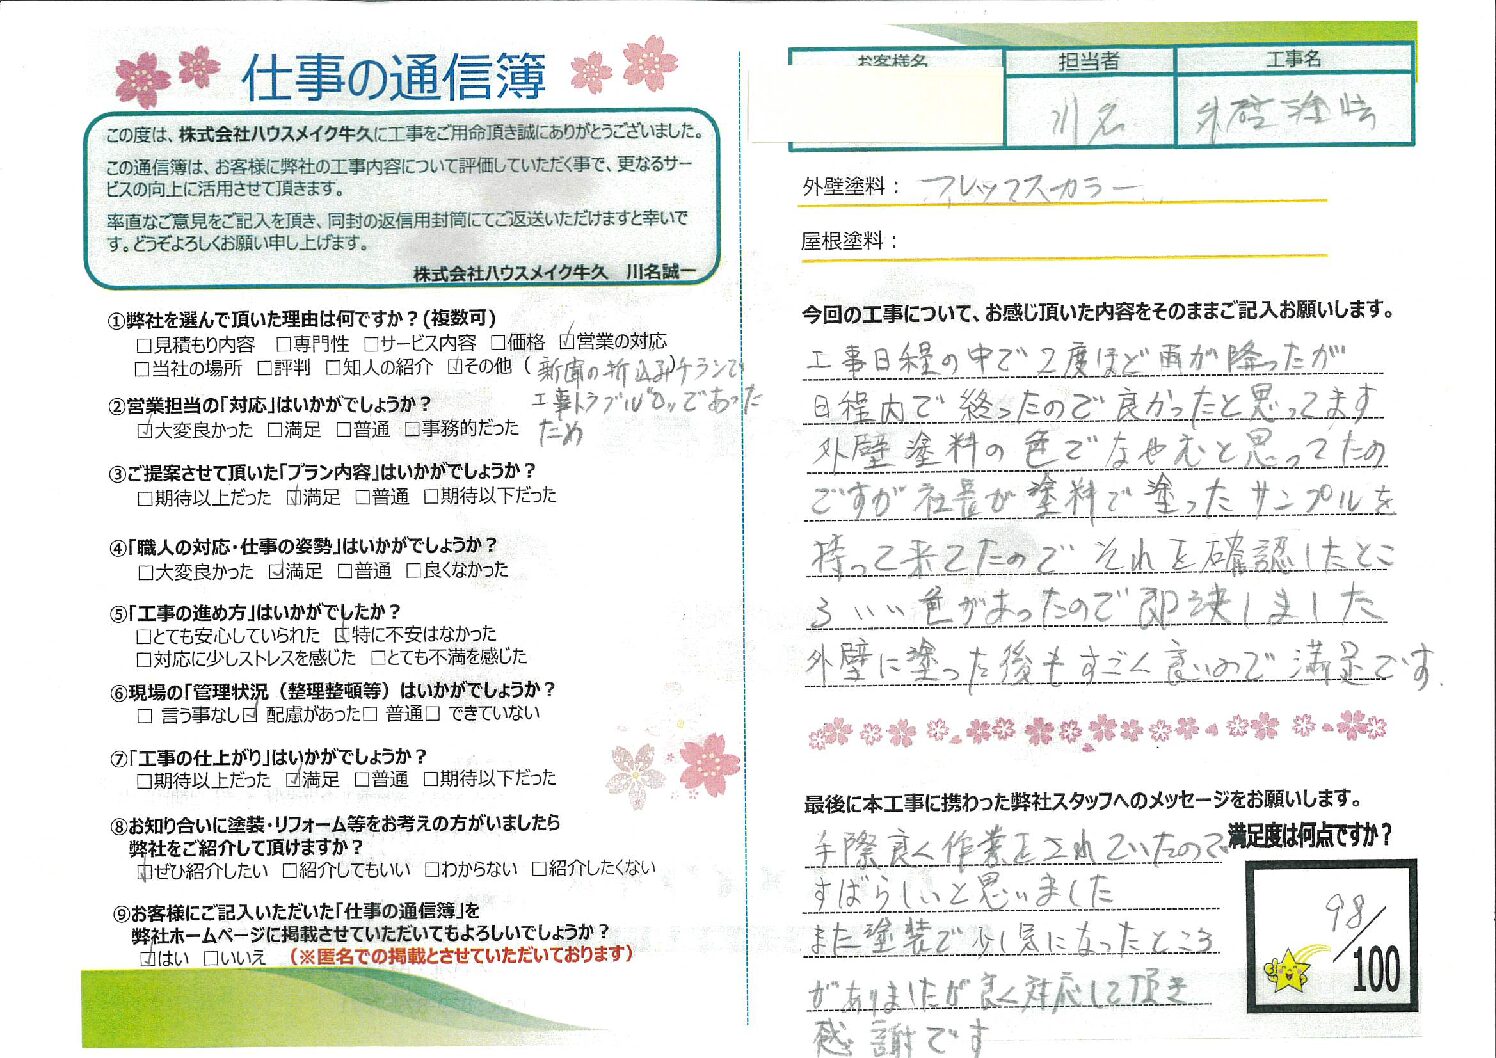 仕事の通信簿
この度は、株式会社ハウスメイク牛久に工事をご用命頂き誠にありがとうございました。
この通信簿は、お客様に弊社の工事内容について評価していただく事で、更なるサー
ビスの向上に活用させて頂きます。
率直なご意見をご記入を頂き、同封の返信用封筒にてご返送いただけますと幸いで
す。どうぞよろしくお願い申し上げます。
株式会社ハウスメイク牛久 川名誠一
①弊社を選んで頂いた理由は何ですか？(複数可)
□見積もり内容 □専門性 □サービス内容 □価格 ☑営業の対応
□当社の場所 □評判 □知人の紹介 ☑その他 ( 新聞の折込みチラシで )
工事トラブル"0"であった
ため
②営業担当の「対応」はいかがでしょうか？
☑大変良かった □満足 □普通 □事務的だった
③ご提案させて頂いた「プラン内容」はいかがでしょうか？
□期待以上だった ☑満足 □普通 □期待以下だった
④「職人の対応・仕事の姿勢」はいかがでしょうか？
□大変良かった ☑満足 □普通 □良くなかった
⑤「工事の進め方」はいかがでしたか？
□とても安心していられた ☑特に不安はなかった
□対応に少しストレスを感じた □とても不満を感じた
⑥現場の「管理状況（整理整頓等）はいかがでしょうか？
□ 言う事なし☑ 配慮があった□ 普通□ できていない
⑦「工事の仕上がり」はいかがでしょうか？
□期待以上だった ☑満足 □普通 □期待以下だった
⑧お知り合いに塗装・リフォーム等をお考えの方がいましたら
弊社をご紹介して頂けますか？
☑ぜひ紹介したい □紹介してもいい □わからない □紹介したくない
⑨お客様にご記入いただいた「仕事の通信簿」を
弊社ホームページに掲載させていただいてもよろしいでしょうか？
☑はい □いいえ （※匿名での掲載とさせていただいております）
お客様名 担当者 工事名
川名 外壁塗装
外壁塗料： フレックスカラー
屋根塗料：
今回の工事について、お感じ頂いた内容をそのままご記入お願いします。
工事日程の中で2度ほど雨が降ったが
日程内で終ったので良かったと思ってます
外壁塗料の色でなやむと思ってたの
ですが社長が塗料で塗ったサンプルを
持って来てたのでそれを確認したとこ
ろいい色があったので即決しました
外壁に塗った後もすごく良いので満足です.
最後に本工事に携わった弊社スタッフへのメッセージをお願いします。
手際良く作業をされていたので
すばらしいと思いました
また塗装で少し気になったところ
がありましたが良く対応して頂き
感謝です
満足度は何点ですか？
98/100